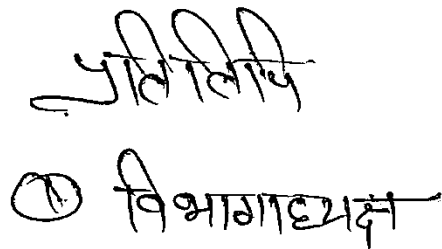 प्रतिलिपि
① विभागाध्यक्ष